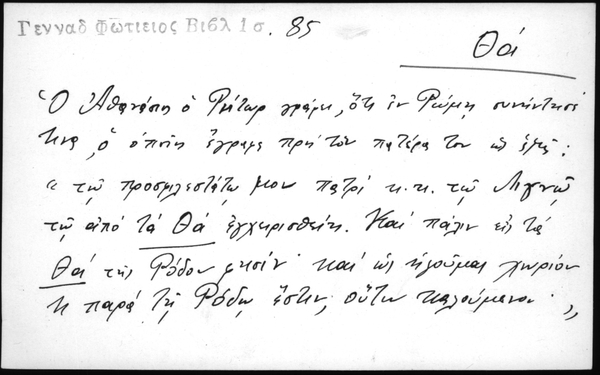 Γενναδ Φωτιειος Βιβλ 1σ. 85
Θά
Ὁ Ἀθανάσης ὁ Ρήτωρ γράφει, ὅτι ἐν Ρώμῃ συνήντησέ
τινα, ὁ ὁποῖος ἔγραφε πρὸς τὸν πατέρα του ὡς ἑξῆς:
"τῷ προσφιλεστάτῳ μου πατρί κ.κ. τῷ
τῷ ἀπό τά Θά ἐγχειρισθείη. Καί πάλιν εἰς τά
Θά τῆς Ρόδου φησίν καί ὡς ἡγοῦμαι χωρίον
τι παρά τῇ Ρόδῳ ἔστιν, οὕτω καλούμενον."